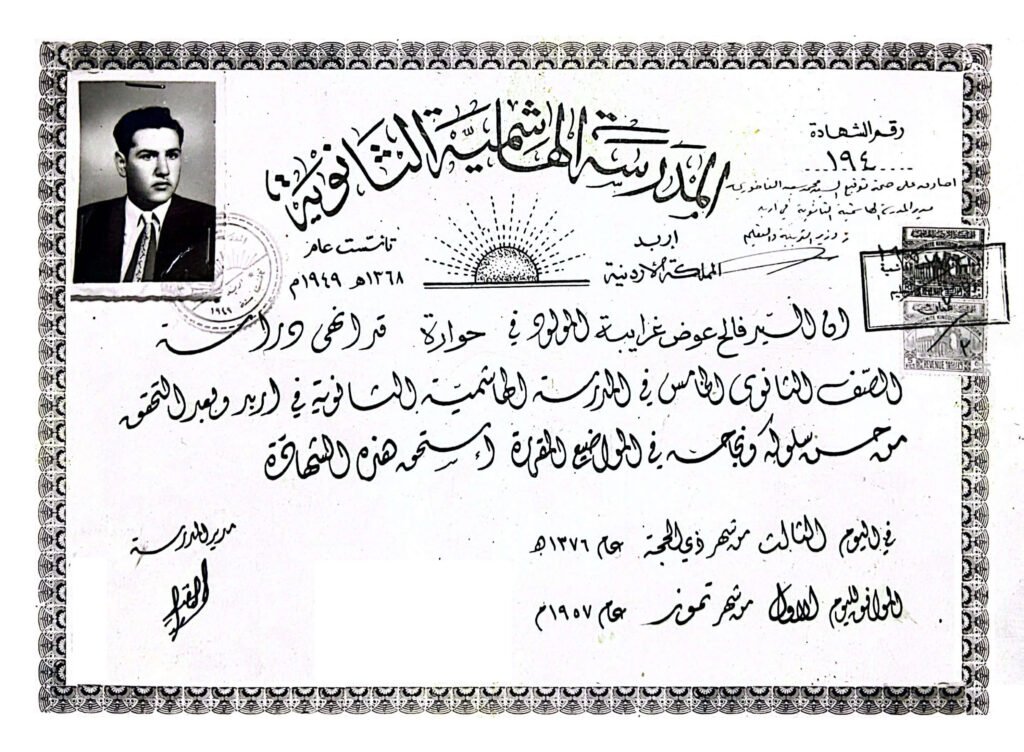 المدرسة الهاشمية الثانوية
رقم الشهادة
١٩٤٠
اصادق على صحة توقيع السيد محمد سعد
مدير المدرسة الهاشمية الثانوية في اربد
وزير التربية والتعليم
اربد
المملكة الاردنية
تأسست عام
١٣٦٨ھ ١٩٤٩م
ان السيد فالح عوض غرايبة المولود في حوارة قد انهى دراسة
الصف الثانوي الخامس في المدرسة الهاشمية الثانوية في اربد وبعد التحقق
من حسن سلوكه ونجاحه في المواضيع المقررة إستحق هذه الشهادة
في اليوم الثالث من شهر ذي الحجة عام ١٣٧٦ھ
الموافق لليوم الاول من شهر تموز عام ١٩٥٧م
مدير المدرسة